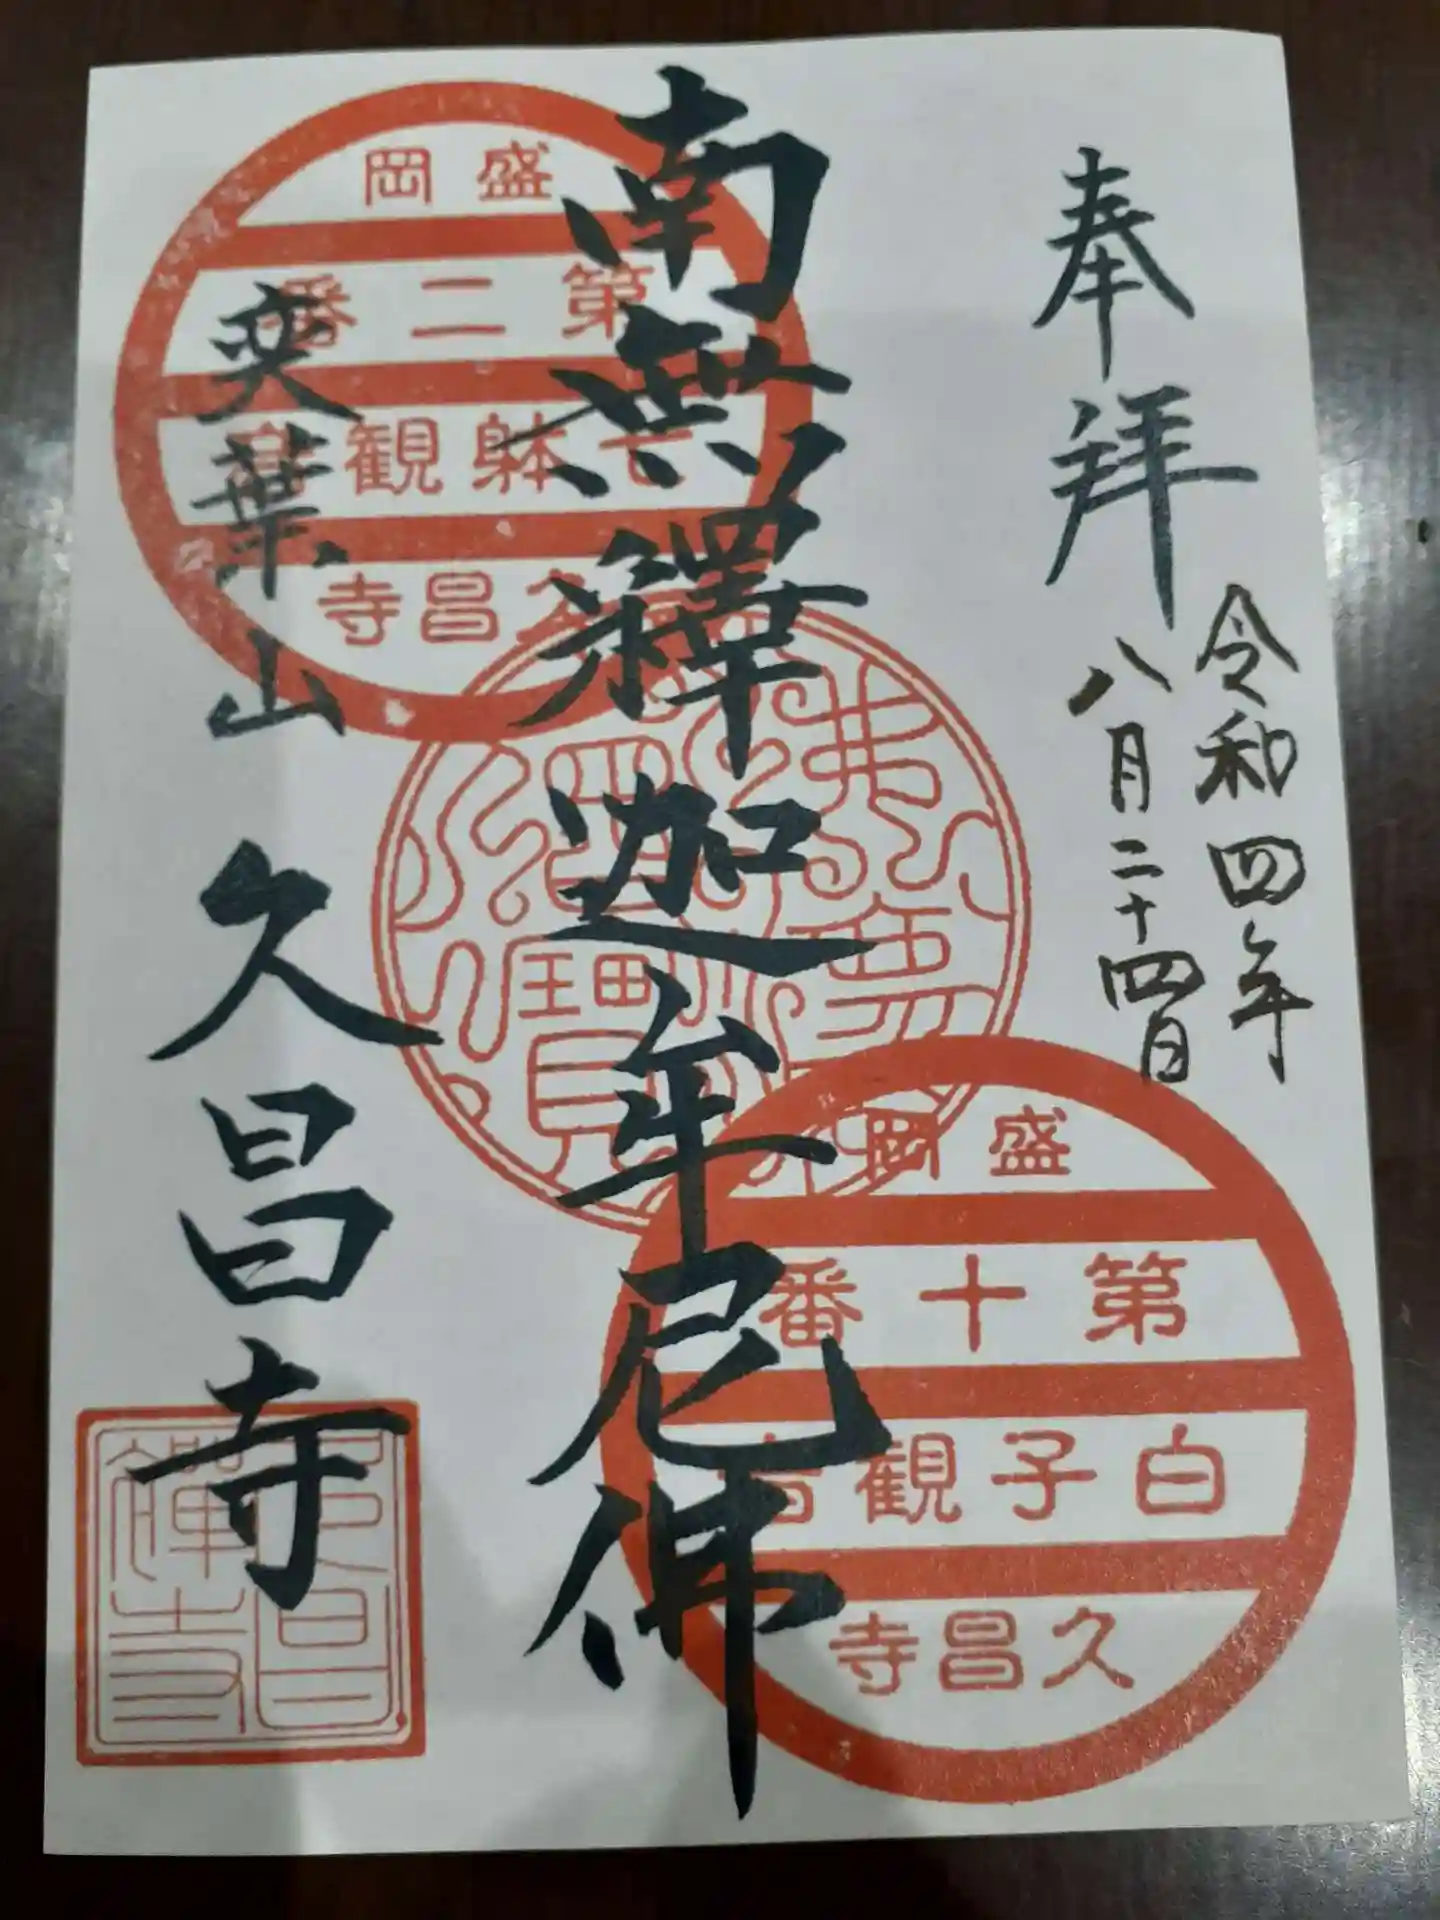 奉拝
令和四年
八月二十四日
南無釋迦牟尼佛
葉山
久昌寺
盛岡
第二番
七躰観音
久昌寺
佛
寶
盛岡
第十番
白子観音
久昌寺
久昌
禅寺